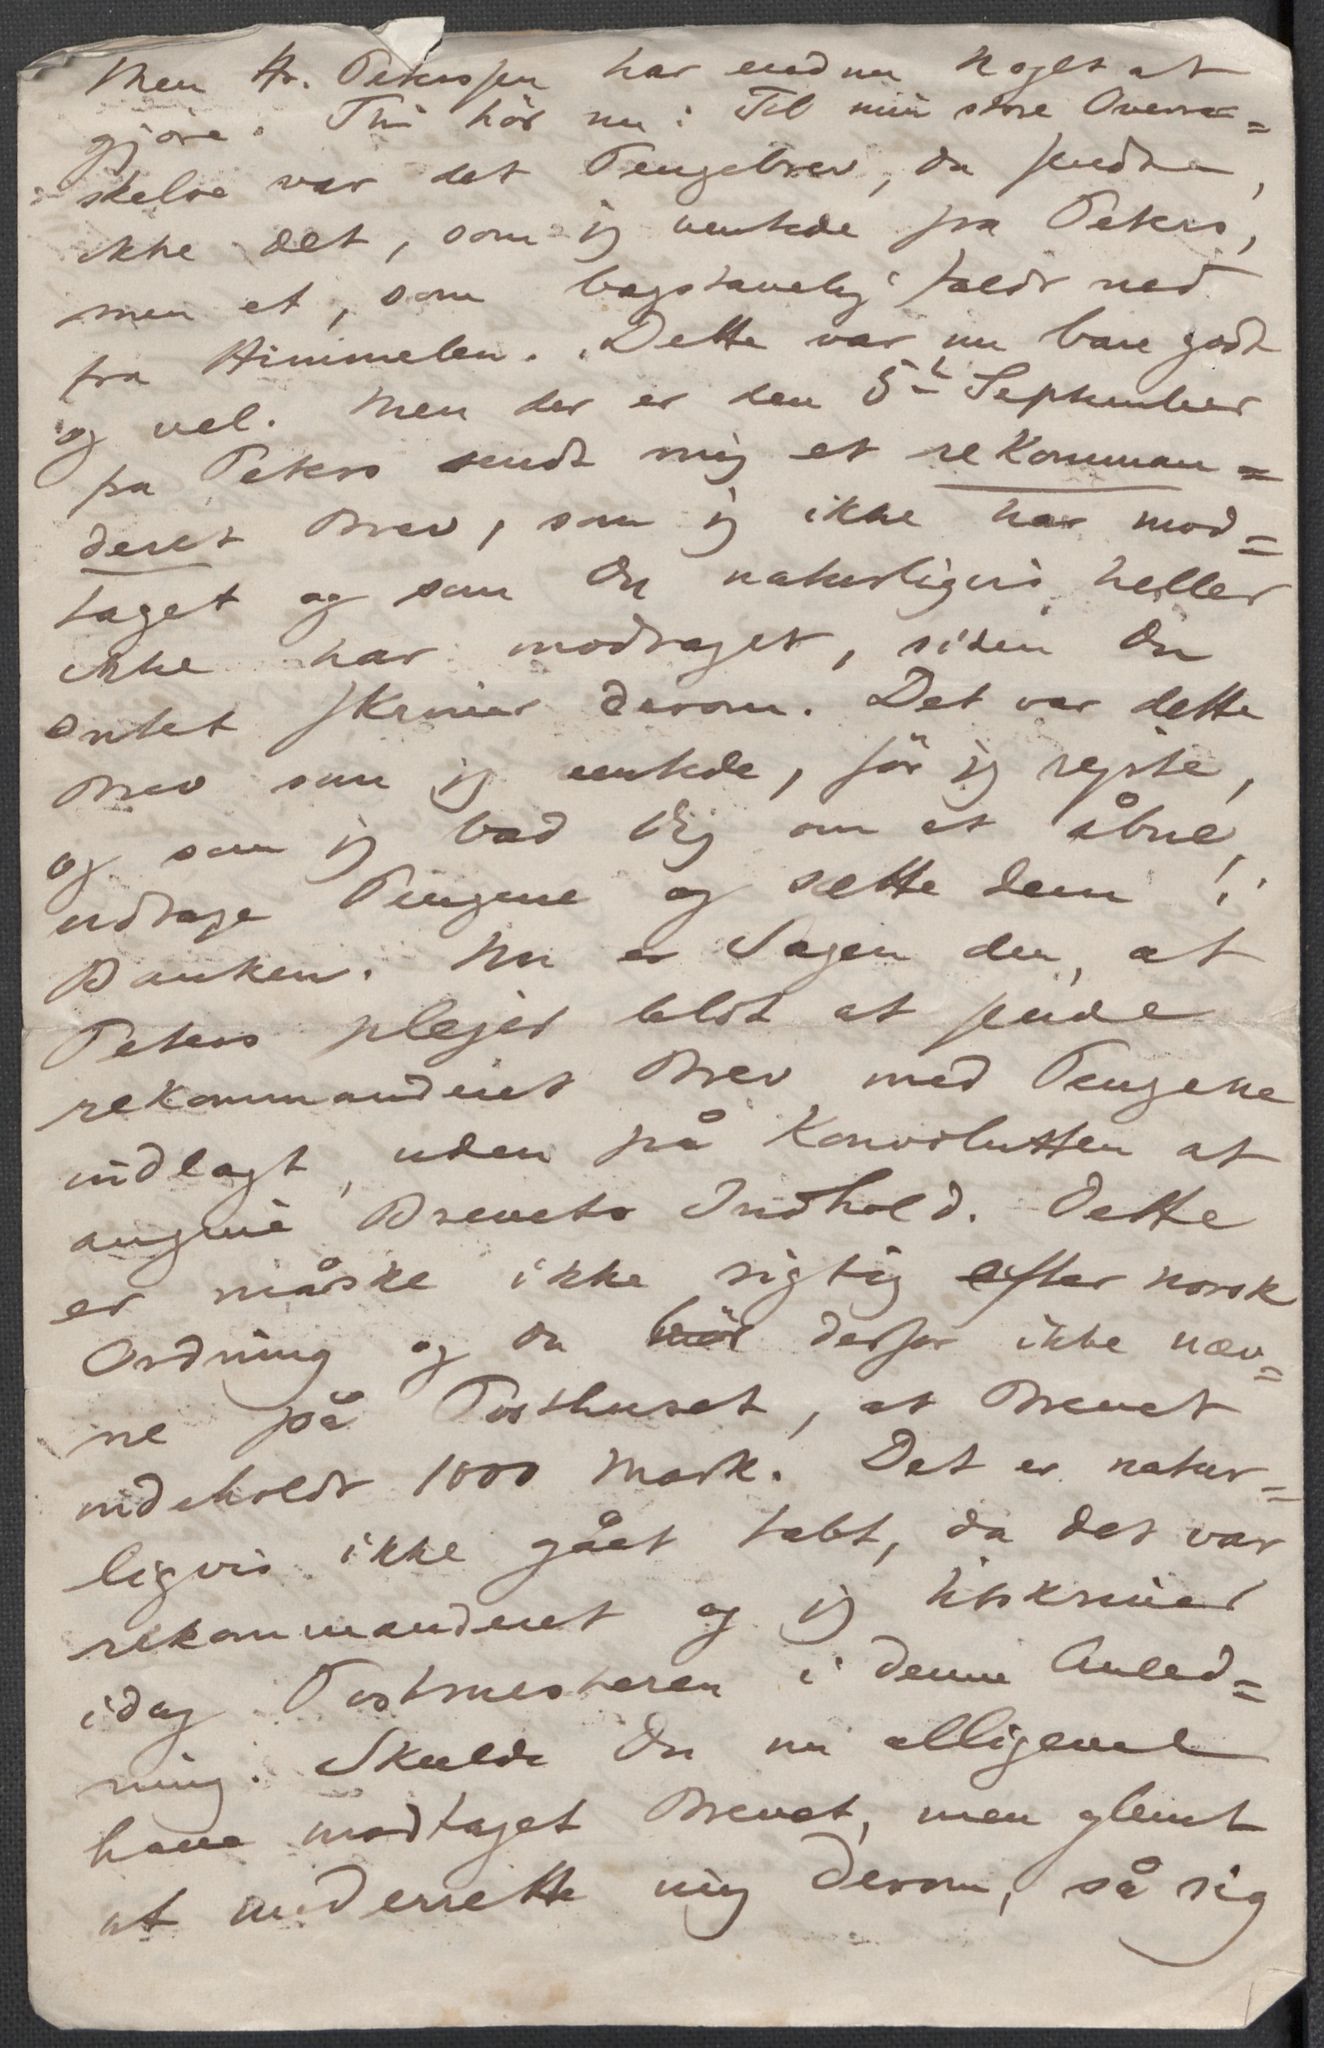 Men Hr. Peterssen har endnu Noget at
gjøre. Thi hör nu: Til min store Overra=
skelse var det Pengebrev, du sendte,
ikke det, som jeg ventede fra Peters,
men et, som bogstavelig faldt ned
fra Himmelen. Dette var nu bare godt
og vel. Men der er den 5t September
fra Peters sendt mig et rekomman=
deret Brev, som jeg ikke har mod=
taget og som Du naturligvis heller
ikke har modtaget, siden Du
Intet skriver derom. Det var dette
Brev som jeg ventede, før jeg rejste,
og som jeg bad Dig om at åbne,
udtage Pengene og sætte dem i
Banken. Nu er Sagen den, at
Peters plejer blot at sende
rekommanderet Brev med Pengene
indlagt, uden på Konvolutten at
angive Brevets Indhold. Dette
er måske ikke rigtig efter norsk
Ordning og du bör derfor ikke næv=
ne på Posthuset, at Brevet
indeholdt 1000 Mark. Det er natur=
ligvis ikke gået tabt, da det var
rekommanderet og jeg tilskriver
idag Postmesteren i denne Anled=
ning. Skulde Du nu alligevel
have modtaget Brevet, men glemt
at underrette mig derom, så sig